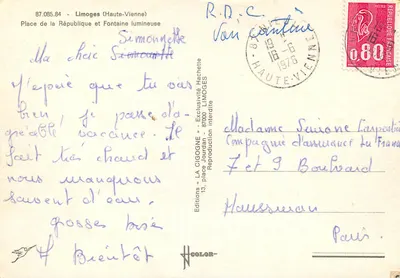 87.085.84 - Limoges (Haute-Vienne)
Place de la République et Fontaine lumineuse
Simonnette
Ma chère
J'espère que tu vas
bien, je passe d'a-
gréable vacance. Il
fait très chaud et
nous manquons
souvent d'eau.
grosses bises
A Bientôt
Editions - LA CIGOGNE - Exclusivité Hachette
13, place Jourdan - 87000 LIMOGES
Reproduction interdite
COLOR
R.D.C
1976
HAUTE-VIENNE
0,80
Madame Simone Carpentier
Compagnie d'assurances La France
7 et 9 Boulevard
Haussmann
Paris.